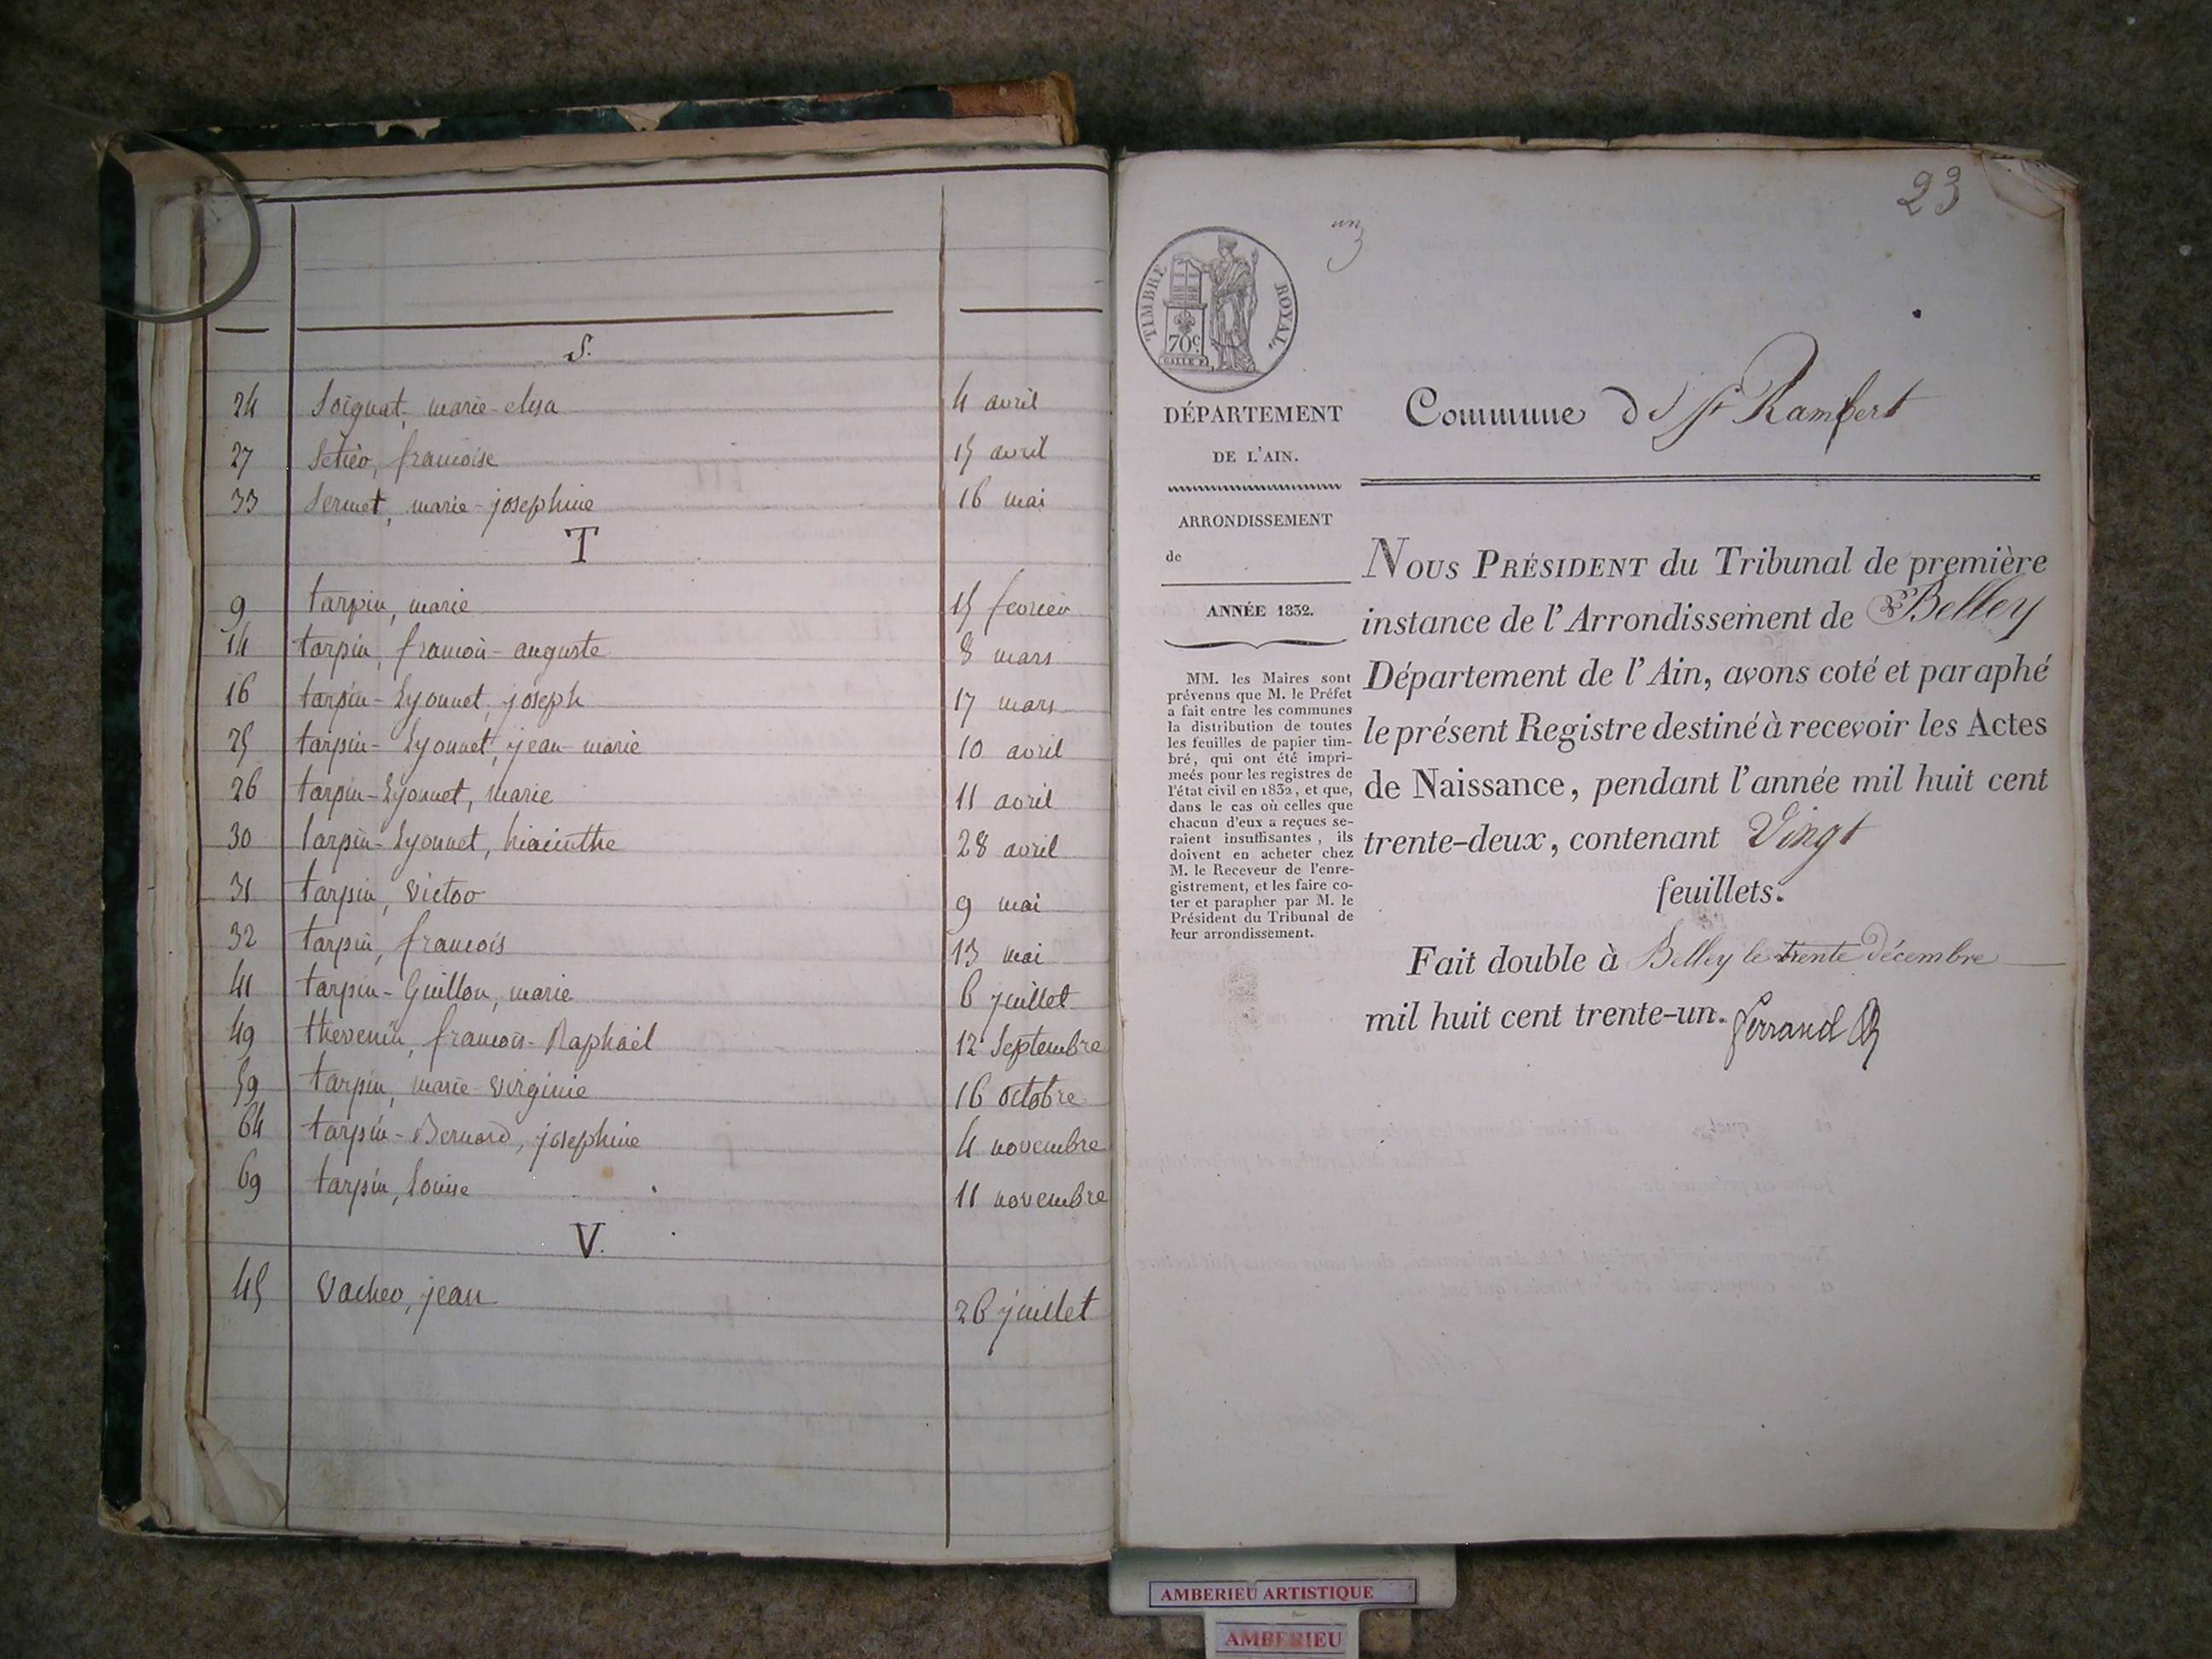 S.
24 Soignat, marie-elisa 4 avril
27 françoise 15 avril
33 Sermet, marie-josephine 16 mai
T
9 tarpin, marie 15 fevrier
14 tarpin, françois-auguste 8 mars
16 tarpin-Lyonnet, joseph 17 mars
25 tarpin-Lyonnet, jean-marie 10 avril
26 tarpin-Lyonnet, marie 11 avril
30 tarpin-Lyonnet, hiacinthe 28 avril
31 tarpin, victor 9 mai
32 tarpin, françois 13 mai
41 tarpin-Guillon, marie 6 juillet
49 thevenin, françois-Raphaël 12 Septembre
59 tarpin, marie-virginie 16 octobre
64 tarpin-Bernard, josephine 4 novembre
69 tarpin, Louise 11 novembre
V.
45 Vacher, jean 26 juillet
23
un
TIMBRE ROYAL.
70c
DÉPARTEMENT
DE L'AIN.
ARRONDISSEMENT
de
ANNÉE 1832.
MM. les Maires sont
prévenus que M. le Préfet
a fait entre les communes
la distribution de toutes
les feuilles de papier tim-
bré, qui ont été impri-
meés pour les registres de
l'état civil en 1832, et que,
dans le cas où celles que
chacun d'eux a reçues se-
raient insuffisantes, ils
doivent en acheter chez
M. le Receveur de l'enre-
gistrement, et les faire co-
ter et parapher par M. le
Président du Tribunal de
leur arrondissement.
Commune de St Rambert
NOUS PRÉSIDENT du Tribunal de première
instance de l'Arrondissement de Belley
Département de l'Ain, avons coté et paraphé
le présent Registre destiné à recevoir les Actes
de Naissance, pendant l'année mil huit cent
trente-deux, contenant Vingt
feuillets.
Fait double à Belley le trente décembre
mil huit cent trente-un. Ferrand
AMBERIEU ARTISTIQUE
AMBERIEU